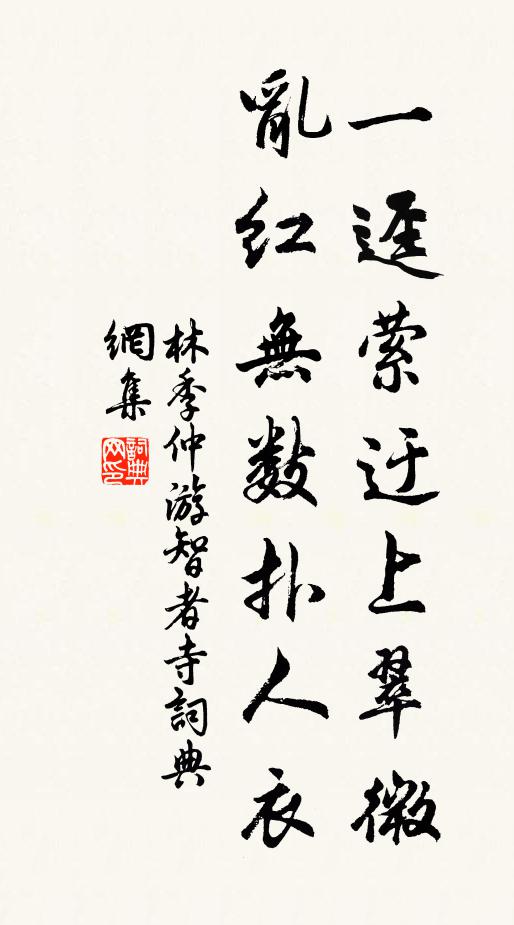 一逕萦迂上翠微
亂红無数扑人衣
林季仲游智者寺詞典
網集
詞典
网印